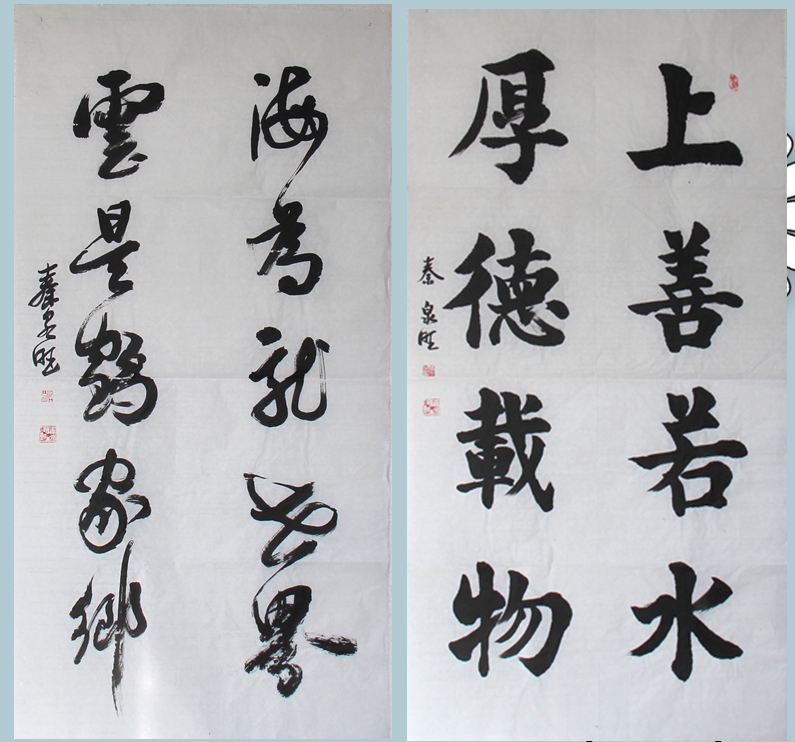 海為龍世界
雲是鶴家鄉
秦泉旺
上善若水
厚德載物
秦泉旺